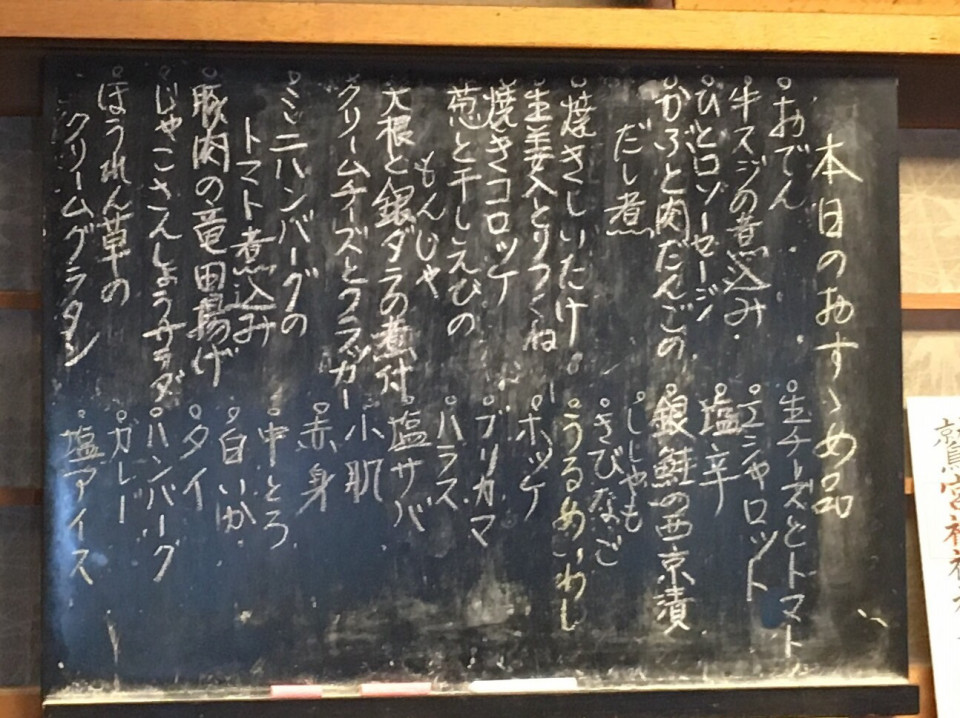 本日のおすゝめ品
おでん
牛スジの煮込み
ひとロソーセージ
かぶと肉だんごの
だし煮
焼きしいたけ
生姜入とりつくね
焼きコロッケ
葱と干しえびの
もんじゃ
大根と銀ダラの煮付
クリームチーズとクラッカー
ミニハンバーグの
トマト煮込み
豚肉の竜田揚げ
じゃこさんしょうサラダ
ほうれん草の
クリームグラタン
生チーズとトマト
エシャロット
塩辛
銀鮭の西京漬
ししゃも
きびなご
うるめいわし
ホッケ
ブリカマ
ハラス
塩サバ
小肌
赤身
中とろ
白いか
タイ
ハンバーグ
カレー
塩アイス
鷲宮神社